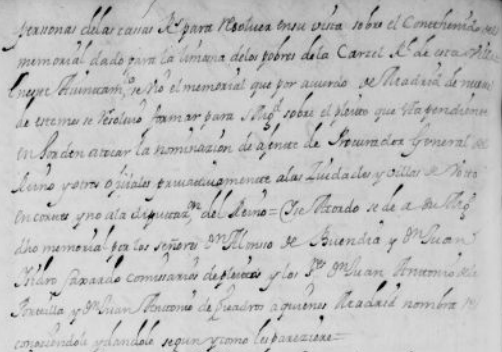 personas de las cassas R.s para resolver en su vista sobre el Conthenido del
memorial dado para la limosna de los pobres de la Carzel R.l de esta Villa
En este Aiuntam.to se vio el memorial que por acuerdo de Madrid de nueve
de este mes se resolvio formar para S Mag.d sobre el pleito que esta pendiente
en horden a tocar la nominazion de ajente de Procurador General del
Reino y otros ofiziales privativamente a las Ziudades y villas de Voto
en cortes y no a la diputaz.on del Reino = Y se Acordo se de a Su Mag.d
dho memorial por los señores D.n Alonso de Buendia y D.n Juan
Isidro Faxardo comissarios de pleitos y los s.res D.n Juan Antonio de
Portilla y D.n Juan Antonio de Quadros a quienes Madrid nombra
conosciendole y dandole segun y como les pareziere =